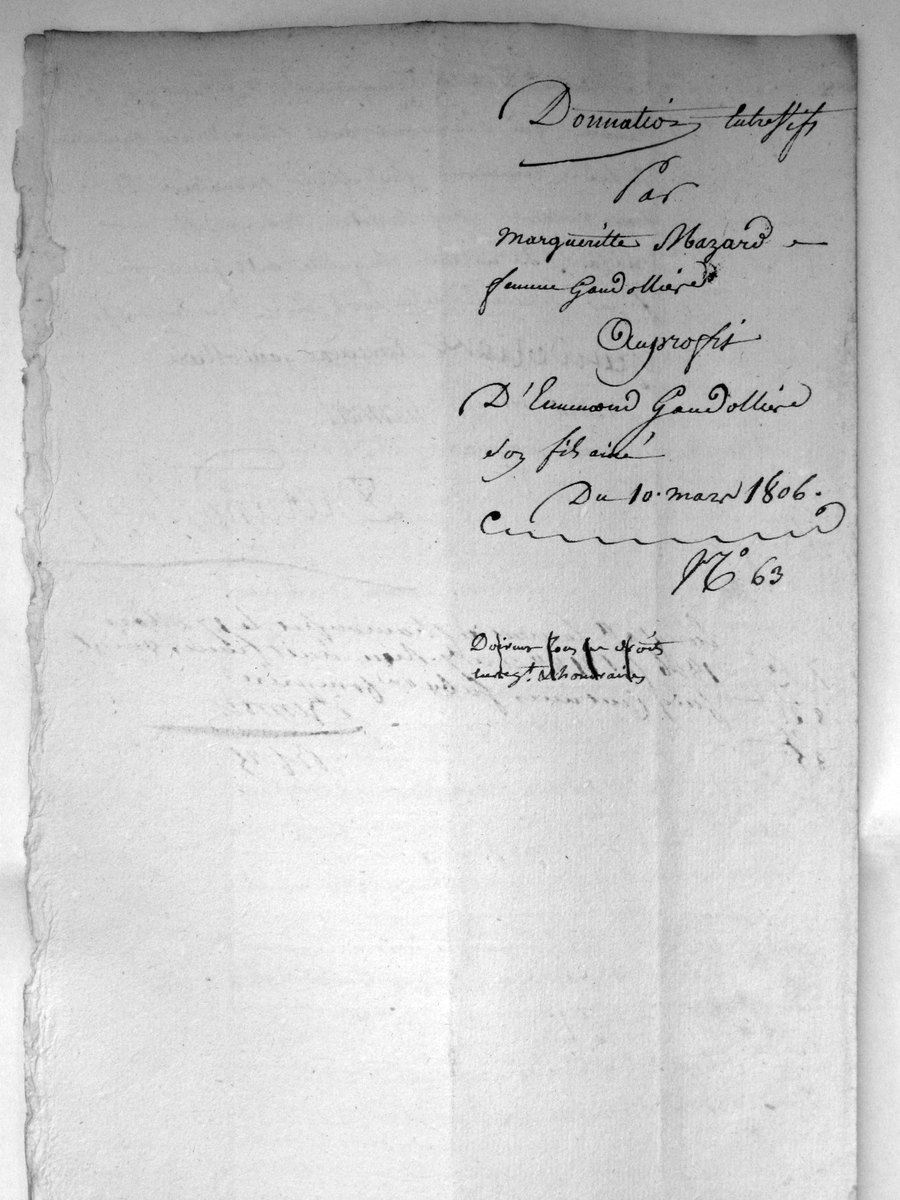 Donnation Entre vifs
Par
Margueritte Mazard
femme Gaudollière
Au proffit
D'Ennemond Gaudollière
son fils ainé
Du 10. mars 1806.
N° 63
Doivent tous les droits
enreg.t & honoraires